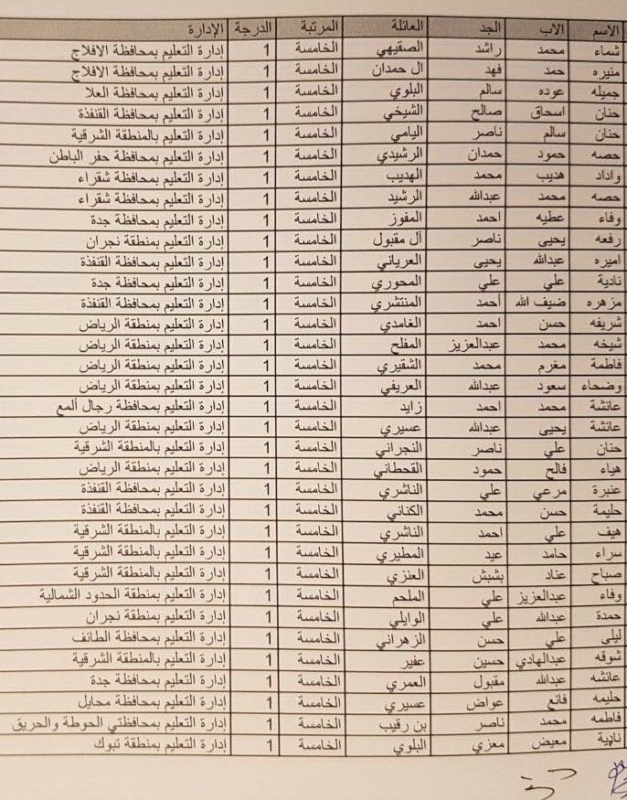 الاسم الاب الجد العائلة المرتبة الدرجة الإدارة
شماء محمد راشد الصقيهي الخامسة 1 إدارة التعليم بمحافظة الافلاج
منيره حمد فهد ال حمدان الخامسة 1 إدارة التعليم بمحافظة الافلاج
جميله عوده سالم البلوي الخامسة 1 إدارة التعليم بمحافظة العلا
حنان اسحاق صالح الشيخي الخامسة 1 إدارة التعليم بمحافظة القنفذة
حنان سالم ناصر اليامي الخامسة 1 إدارة التعليم بالمنطقة الشرقية
حصه حمود حمدان الرشيدي الخامسة 1 إدارة التعليم بمحافظة حفر الباطن
واداد هديب محمد الهديب الخامسة 1 إدارة التعليم بمحافظة شقراء
حصه محمد عبدالله الرشيد الخامسة 1 إدارة التعليم بمحافظة شقراء
وفاء عطيه احمد المفوز الخامسة 1 إدارة التعليم بمحافظة جدة
رفعه يحيى ناصر آل مقبول الخامسة 1 إدارة التعليم بمنطقة نجران
اميره عبدالله يحيى العرياني الخامسة 1 إدارة التعليم بمحافظة القنفذة
نادية علي علي المحوري الخامسة 1 إدارة التعليم بمحافظة جدة
مزهره ضيف الله أحمد المنتشري الخامسة 1 إدارة التعليم بمحافظة القنفذة
شريفه حسن احمد الغامدي الخامسة 1 إدارة التعليم بمنطقة الرياض
شيخه محمد عبدالعزيز المفلح الخامسة 1 إدارة التعليم بمنطقة الرياض
فاطمة مغرم محمد الشقيري الخامسة 1 إدارة التعليم بمنطقة الرياض
وضحاء سعود عبدالله العريفي الخامسة 1 إدارة التعليم بمنطقة الرياض
عائشة محمد احمد زايد الخامسة 1 إدارة التعليم بمحافظة رجال ألمع
عائشة يحيى عبدالله عسيري الخامسة 1 إدارة التعليم بمنطقة الرياض
حنان علي ناصر النجراني الخامسة 1 إدارة التعليم بالمنطقة الشرقية
هياء فالح حمود القحطاني الخامسة 1 إدارة التعليم بمنطقة الرياض
عنبرة مرعي علي الناشري الخامسة 1 إدارة التعليم بمحافظة القنفذة
حليمة حسن محمد الكناني الخامسة 1 إدارة التعليم بمحافظة القنفذة
هيف علي احمد الناشري الخامسة 1 إدارة التعليم بالمنطقة الشرقية
سراء حامد عيد المطيري الخامسة 1 إدارة التعليم بالمنطقة الشرقية
صباح عناد بشبش العنزي الخامسة 1 إدارة التعليم بالمنطقة الشرقية
وفاء عبدالعزيز علي الملحم الخامسة 1 إدارة التعليم بمنطقة الحدود الشمالية
حمدة عبدالله علي الوايلي الخامسة 1 إدارة التعليم بمنطقة نجران
ليلى علي حسن الزهراني الخامسة 1 إدارة التعليم بمحافظة الطائف
شوقه عبدالهادي حسين عفير الخامسة 1 إدارة التعليم بالمنطقة الشرقية
عائشه عبدالله مقبول العمري الخامسة 1 إدارة التعليم بمحافظة جدة
حليمه فائع عواض عسيري الخامسة 1 إدارة التعليم بمحافظة محايل
فاطمه محمد ناصر بن رقيب الخامسة 1 إدارة التعليم بمحافظتي الحوطة والحريق
نادية معيض معزي البلوي الخامسة 1 إدارة التعليم بمنطقة تبوك